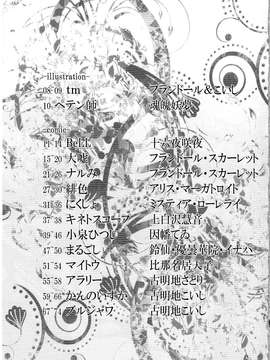 -illustration-
08-09 tm フランドール&こいし
10 ペテン師 魂魄妖夢
-comic-
11-14 BeLL 十六夜咲夜
15-20 大嘘 フランドール・スカーレット
21-26 ナルみ フランドール・スカーレット
27-30 緋色 アリス・マーガトロイド
31-36 にくしょ ミスティア・ローレライ
37-38 キネトスコープ 上白沢慧音
39-46 小泉ひつじ 因幡てゐ
47-50 まるごし 鈴仙・優曇華院・イナバ
51-54 マイトウ 比那名居天子
55-58 アラリー 古明地さとり
59-66 かんのいずか 古明地こいし
67-74 ブルジャワ 古明地こいし